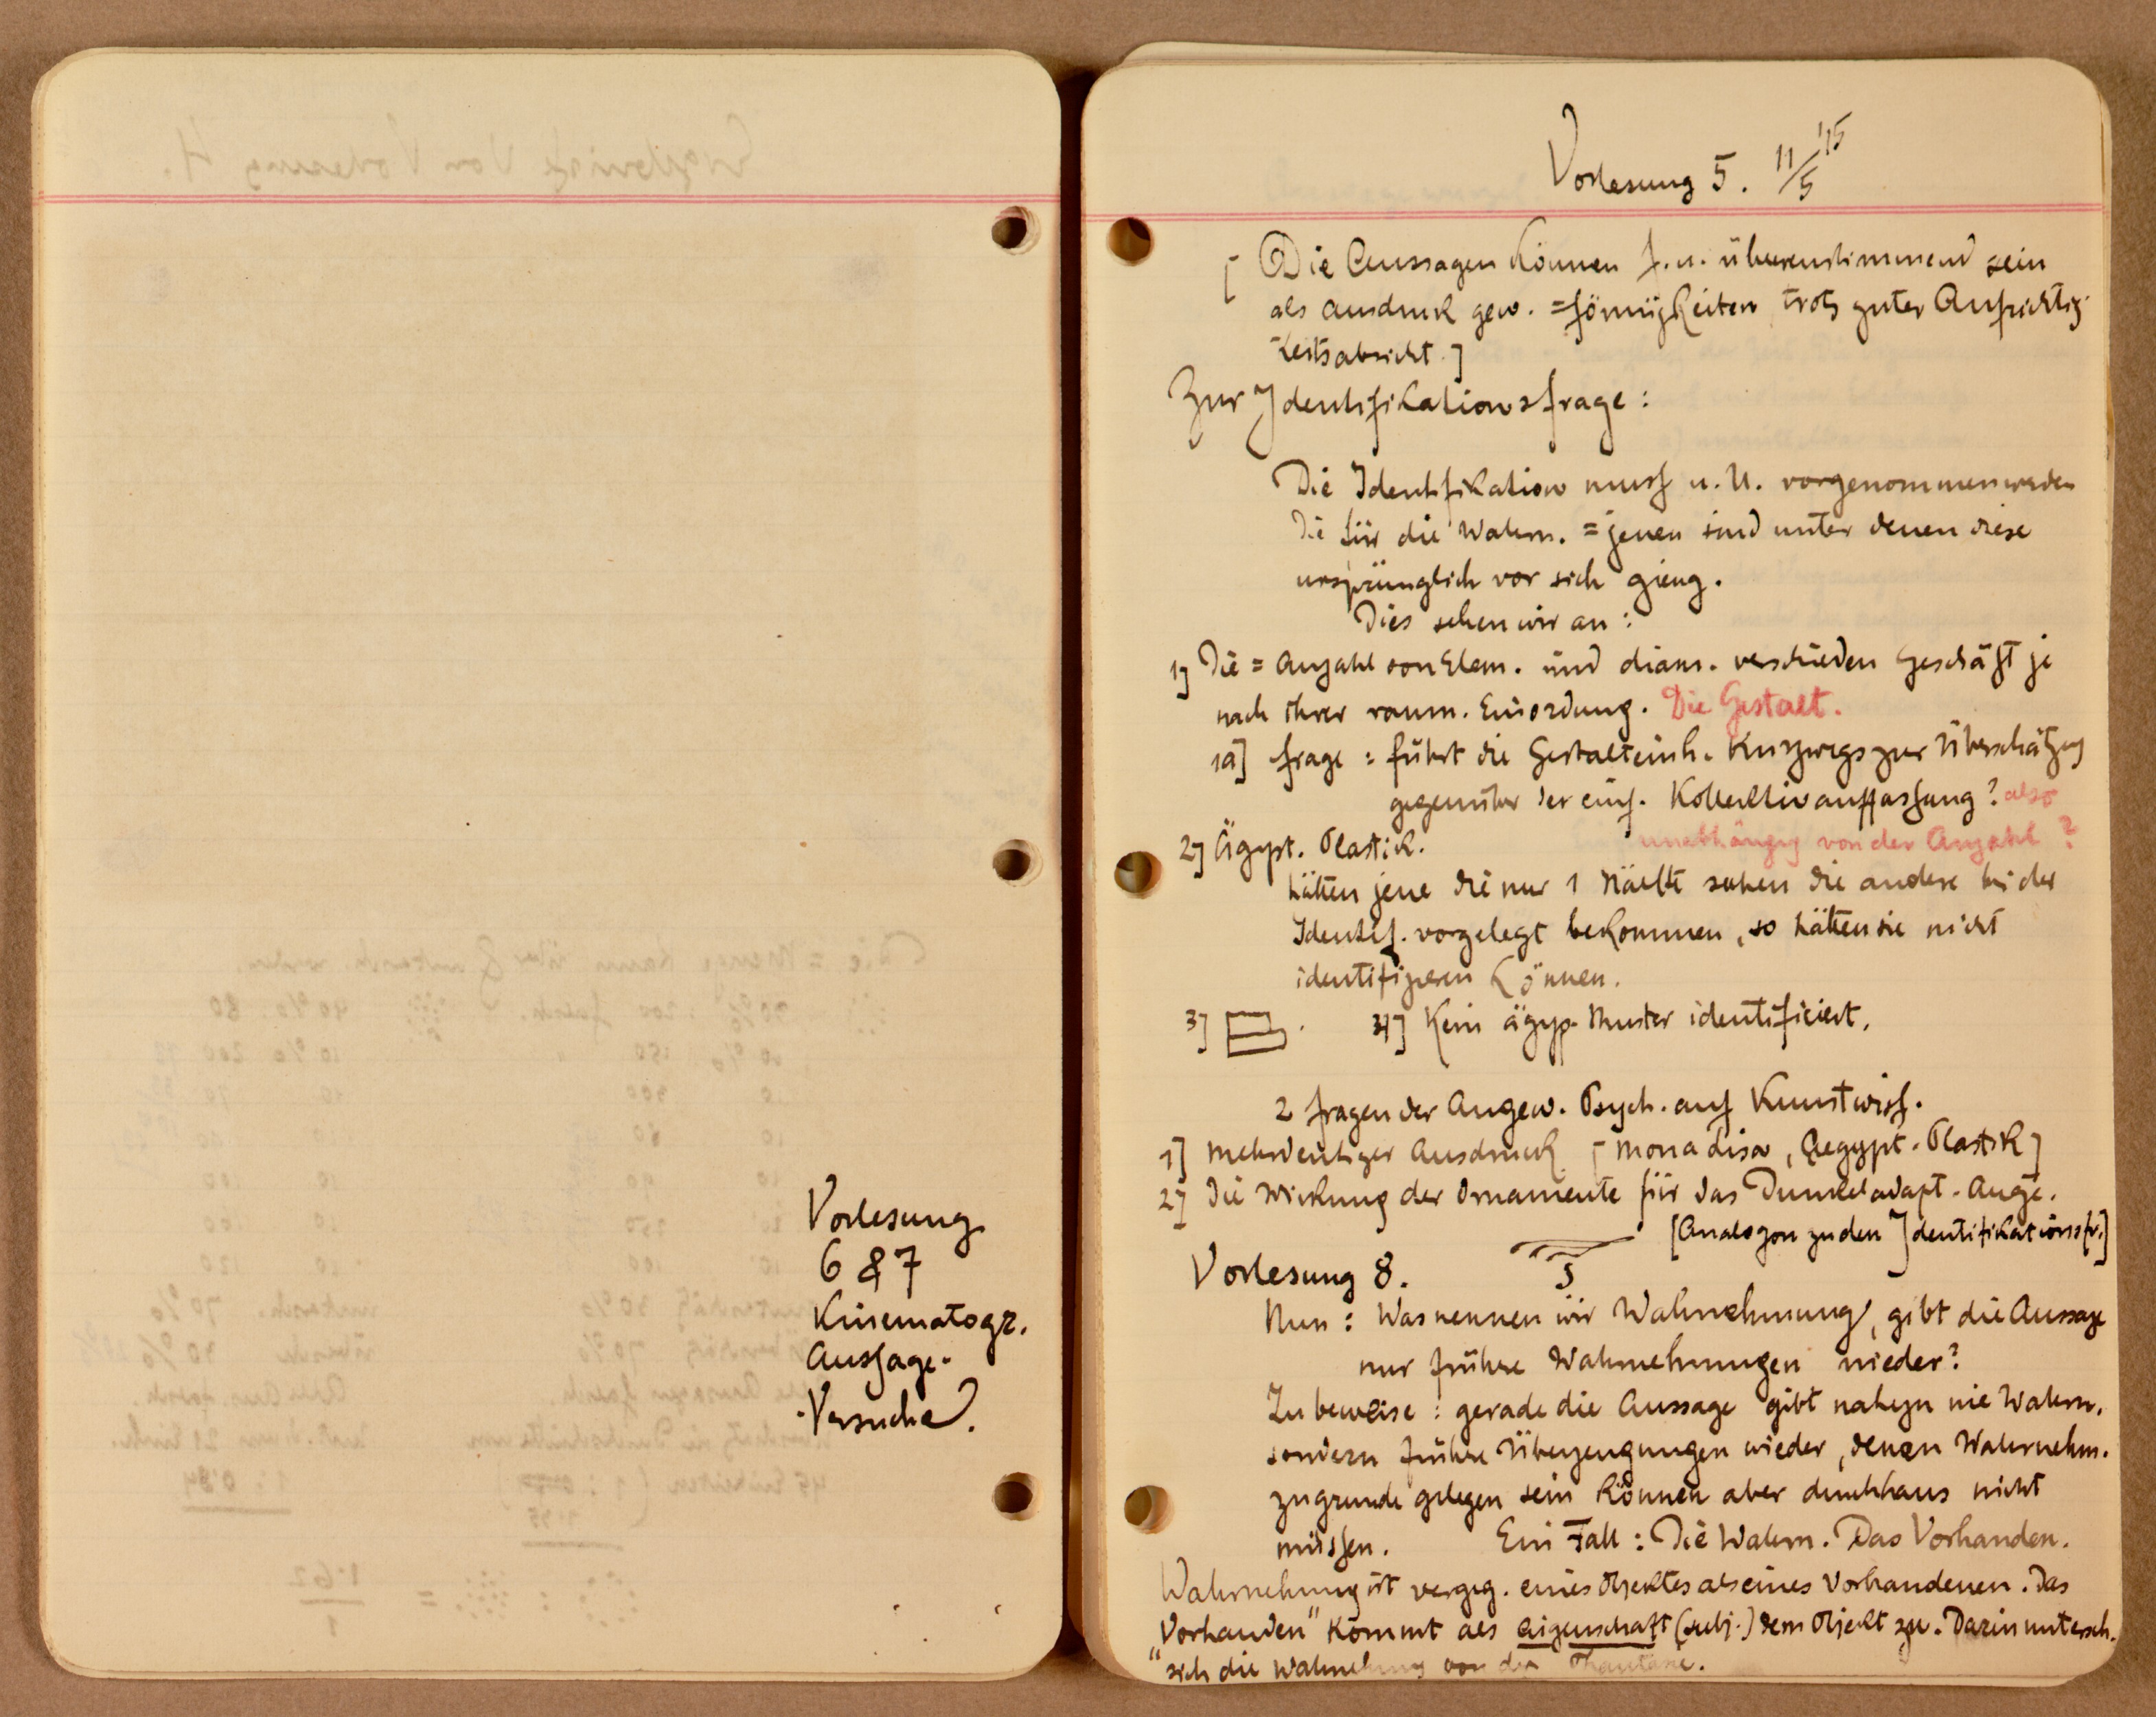 Vorlesung
6 & 7
Kinematogr.
Aussage-
Versuche.
Vorlesung 5. 11/5 '15
[ Die Aussagen können f. u. übereinstimmend sein
als Ausdruck gew. =förmigkeiten trotz guter Aufrichtig-
keitsabsicht.]
Zur Identifikationsfrage:
Die Identifikation muss u. U. vorgenommen werden
die für die Wahrn. = jenen sind unter denen diese
ursprünglich vor sich gieng.
Dies sehen wir an:
1] Die = Anzahl von Elem. wird verschieden geschätzt je
nach ihrer räum. Einordnung. Die Gestalt.
1a] Frage: führt die Gestalteinh. kurzwegs zur Überschätzung
gegenüber der einf. Kollektivauffassung? also
unabhängig von der Anzahl?
2] Ägypt. Plastik.
hätten jene die nur 1 Hälfte sahen die andere bei der
Identif. vorgelegt bekommen, so hätten sie nicht
identifizieren können.
3] 4] Kein ägyp. Muster identificiert.
2 Fragen der Angew. Psych. auf Kunstwiss.
1] Mehrdeutiger Ausdruck [Mona Lisa, Aegypt. Plastik]
2] Die Wirkung der Ornamente für das Dunkeladapt. Auge.
[Analogon zu den Identifikationsfr.]
Vorlesung 8.
Nun: Was nennen wir Wahrnehmung, gibt die Aussage
nur frühre Wahrnehmungen wieder?
Zu beweise: gerade die Aussage gibt nahezu nie Wahrn.
sondern frühre Überzeugungen wieder, denen Wahrnehm.
zugrunde gelegen sein können aber durchhaus nicht
müssen. Ein Fall: Die Wahrn. Das Vorhanden.
Wahrnehmung ist vergeg. eines Objektes als eines Vorhandenen. Das
"Vorhanden" kommt als Eigenschaft (subj.) dem Objekt zu. Darin untersch.
sich die Wahrnehmung von der Phantasie.